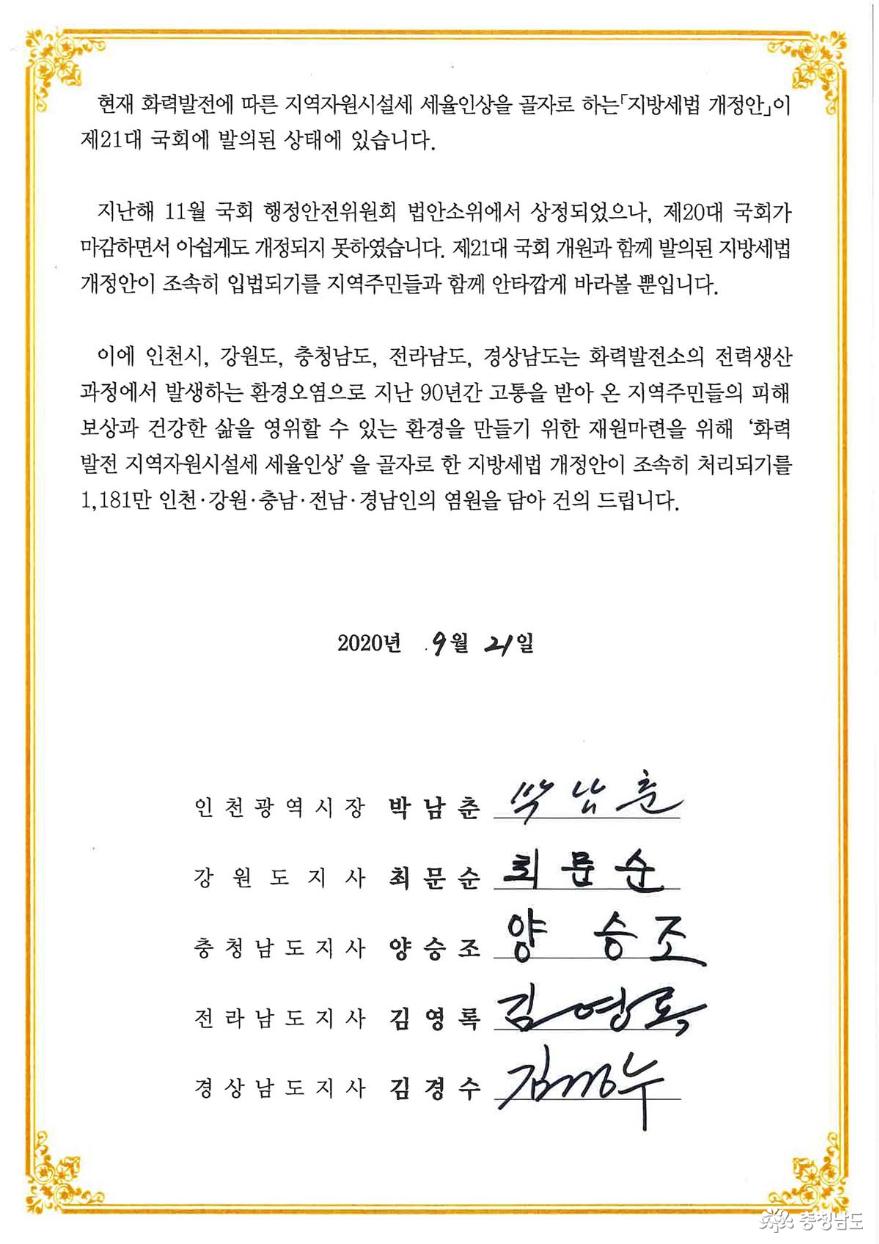 현재 화력발전에 따른 지역자원시설세 세율인상을 골자로 하는「지방세법 개정안」이
제21대 국회에 발의된 상태에 있습니다.
지난해 11월 국회 행정안전위원회 법안소위에서 상정되었으나, 제20대 국회가
마감하면서 아쉽게도 개정되지 못하였습니다. 제21대 국회 개원과 함께 발의된 지방세법
개정안이 조속히 입법되기를 지역주민들과 함께 안타깝게 바라볼 뿐입니다.
이에 인천시, 강원도, 충청남도, 전라남도, 경상남도는 화력발전소의 전력생산
과정에서 발생하는 환경오염으로 지난 90년간 고통을 받아 온 지역주민들의 피해
보상과 건강한 삶을 영위할 수 있는 환경을 만들기 위한 재원마련을 위해 ‘화력
발전 지역자원시설세 세율인상’을 골자로 한 지방세법 개정안이 조속히 처리되기를
1,181만 인천·강원·충남·전남·경남인의 염원을 담아 건의 드립니다.
2020년 9월 21일
인천광역시장 박남춘 박남춘
강원도지사 최문순 최문순
충청남도지사 양승조 양승조
전라남도지사 김영록 김영록
경상남도지사 김경수 김경수
충청남도